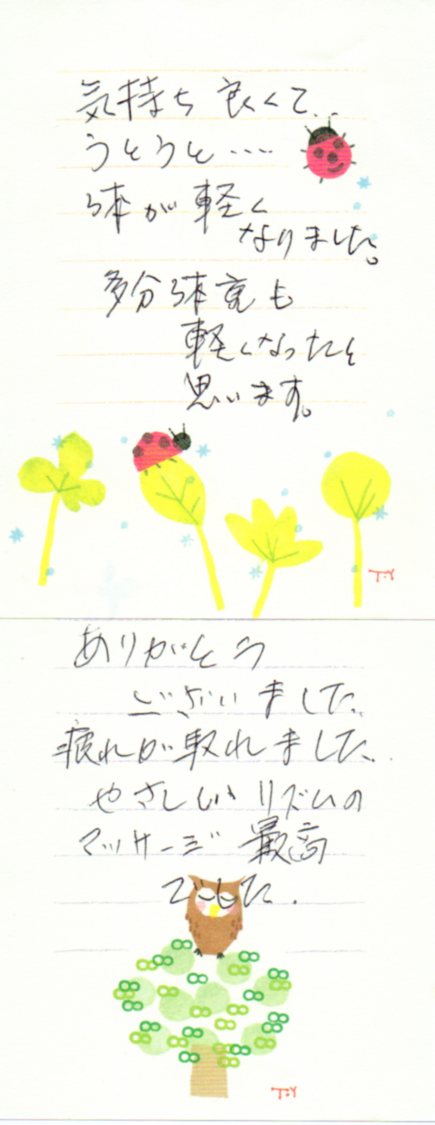 気持ち良くて..
うとうと‥‥
体が軽く
なりました。
多分体重も
軽くなったと
思います。
T.Y
ありがとう
ございました.
疲れが取れました.
やさしいリズムの
マッサージ最高
でした.
T.Y